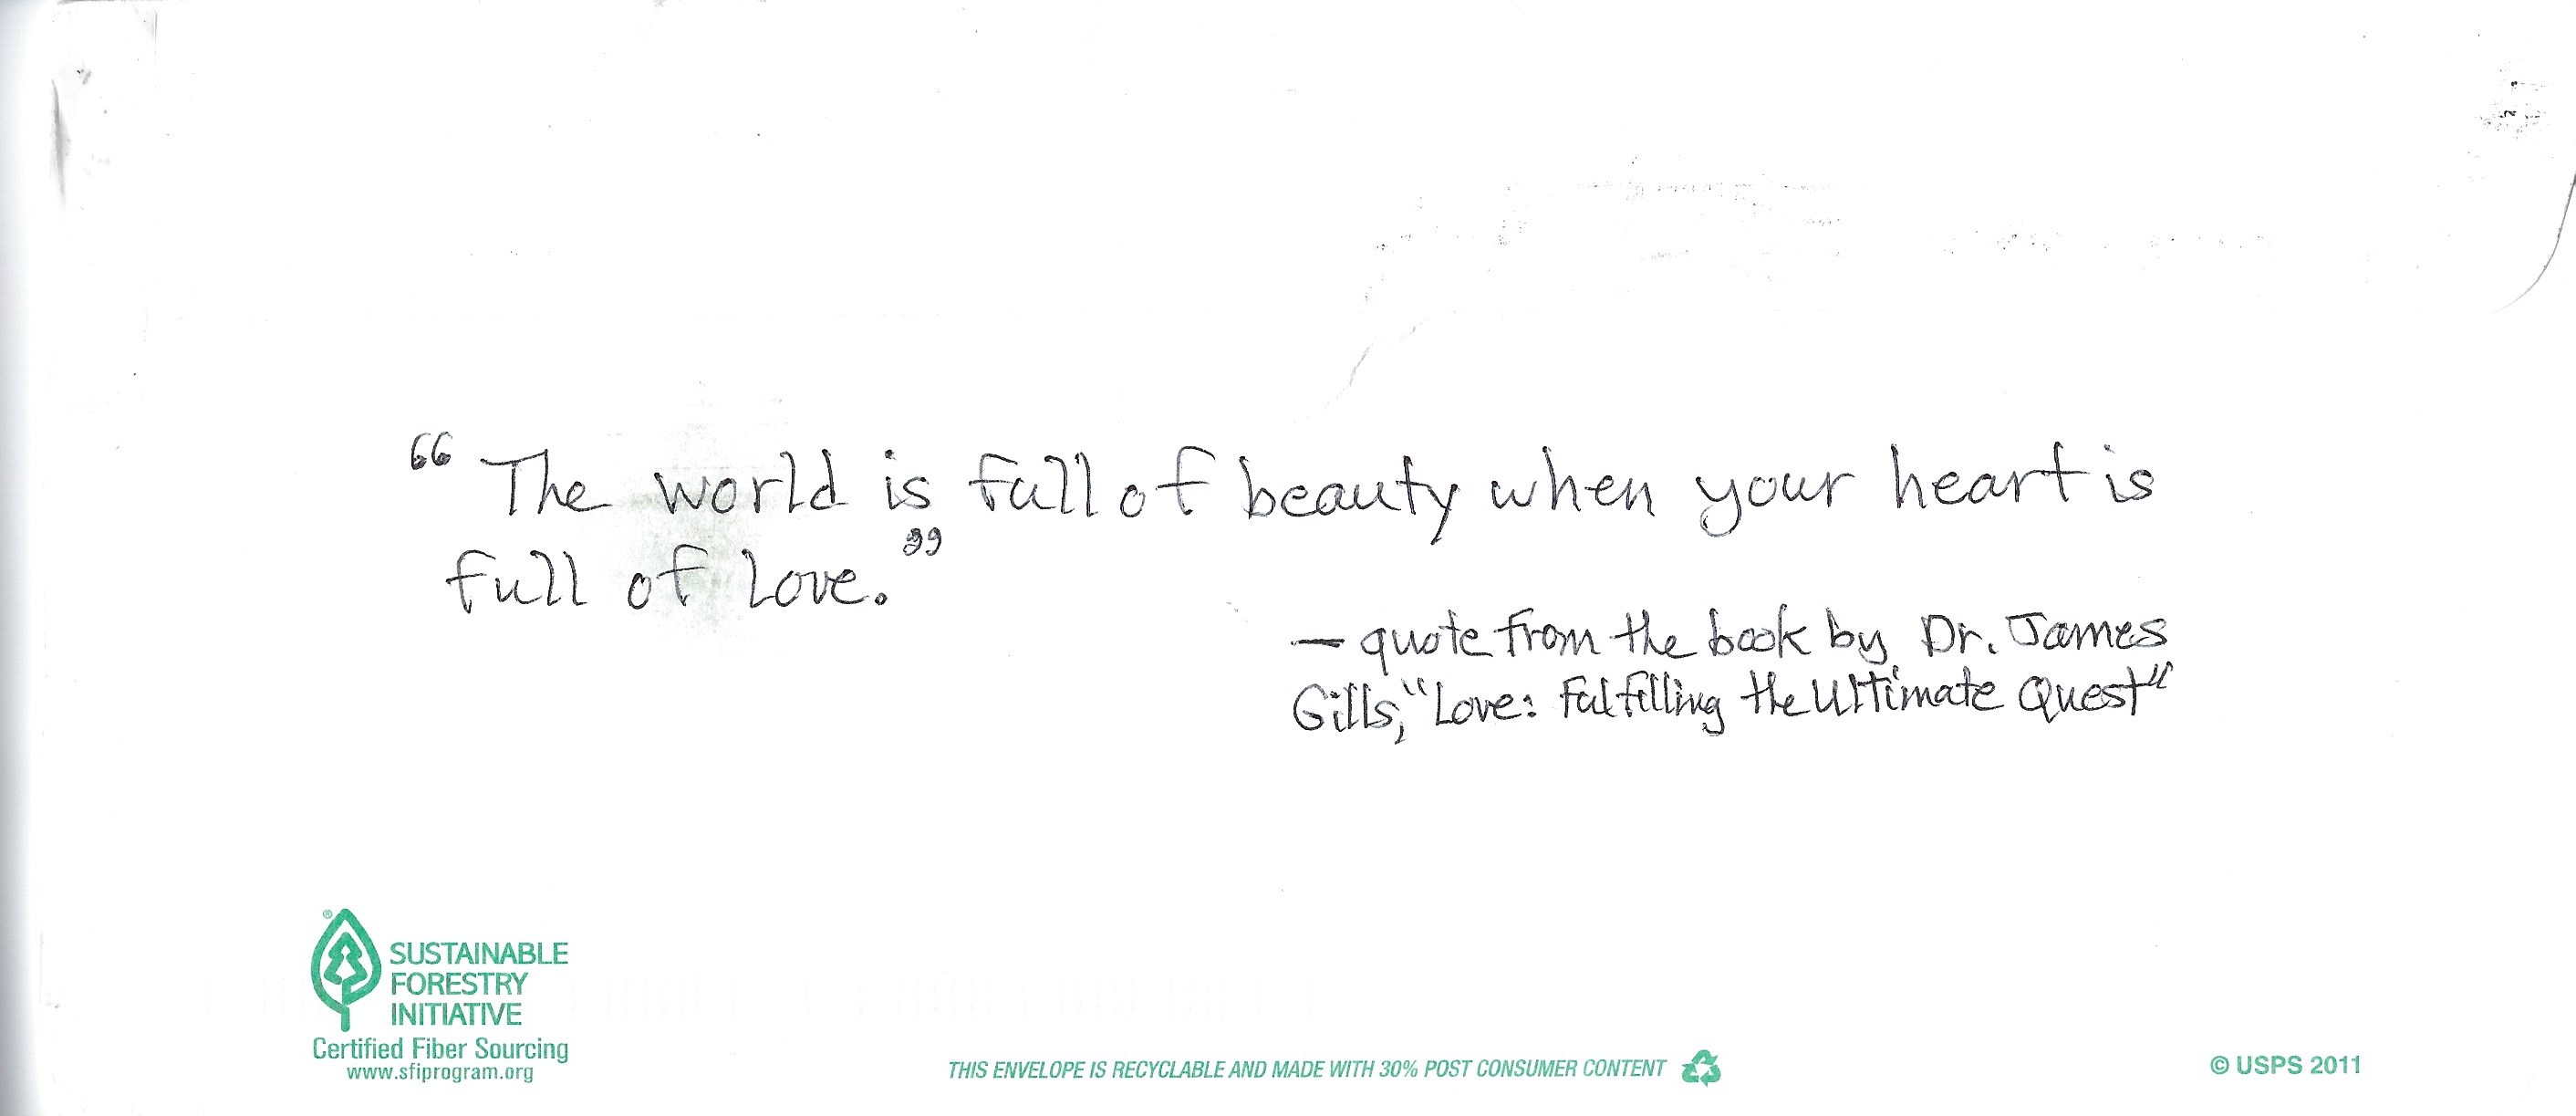 “The world is full of beauty when your heart is
full of Love.”
— quote from the book by Dr. James
Gills, "Love: Fulfilling the Ultimate Quest"
®
SUSTAINABLE
FORESTRY
INITIATIVE
Certified Fiber Sourcing
www.sfiprogram.org
THIS ENVELOPE IS RECYCLABLE AND MADE WITH 30% POST CONSUMER CONTENT
© USPS 2011